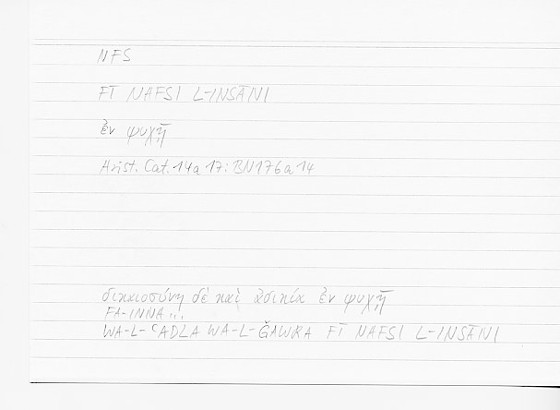 NFS
FĪ NAFSI L-INSĀNI
ἐν ψυχῇ
Arist. Cat. 14a 17: BN176a14
δικαιοσύνη δὲ καὶ ἀδικία ἐν ψυχῇ
FA-INNA...
WA-L-ʿADLA WA-L-ǦAWRA FĪ NAFSI L-INSĀNI